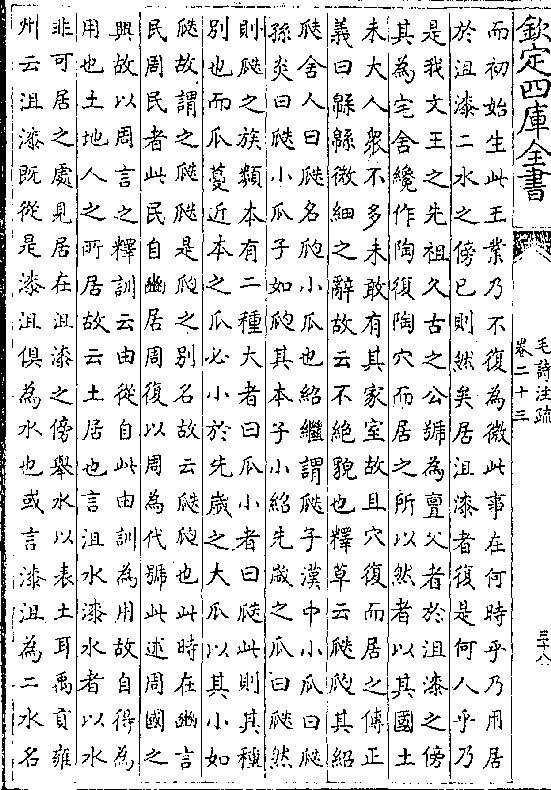 欽定四庫全書
毛詩注疏
卷二十三
三十八
而初始生此王業乃不復為微此事在何時乎乃用居
於沮漆二水之傍已則然矣居沮漆者復是何人乎乃
是我文王之先祖久古之公號為亶父者於沮漆之傍
其為宅舍纔作陶復陶穴而居之所以然者以其國土
未大人衆不多未敢有其家室故且穴復而居之傳正
義曰緜緜微細之辭故云不絶貌也釋草云瓞瓝其紹
瓞舍人曰瓞名瓝小瓜也紹繼謂瓞子漢中小瓜曰瓞
孫炎曰瓞小瓜子如瓝其本子小紹先歲之瓜曰瓞然
則瓞之族類本有二種大者曰瓜小者曰瓞此則其種
别也而瓜蔓近本之瓜必小於先歲之大瓜以其小如
瓞故謂之瓞瓞是瓝之别名故云瓞瓝也此時在豳言
民周民者此民自豳居周復以周為代號此述周國之
興故以周言之釋訓云由從自此由訓為用故自得為
用也土地人之所居故云土居也言沮水漆水者以水
非可居之處見居在沮漆之傍舉水以表土耳禹貢雍
州云沮漆既從是漆沮俱為水也或言漆沮為二水名